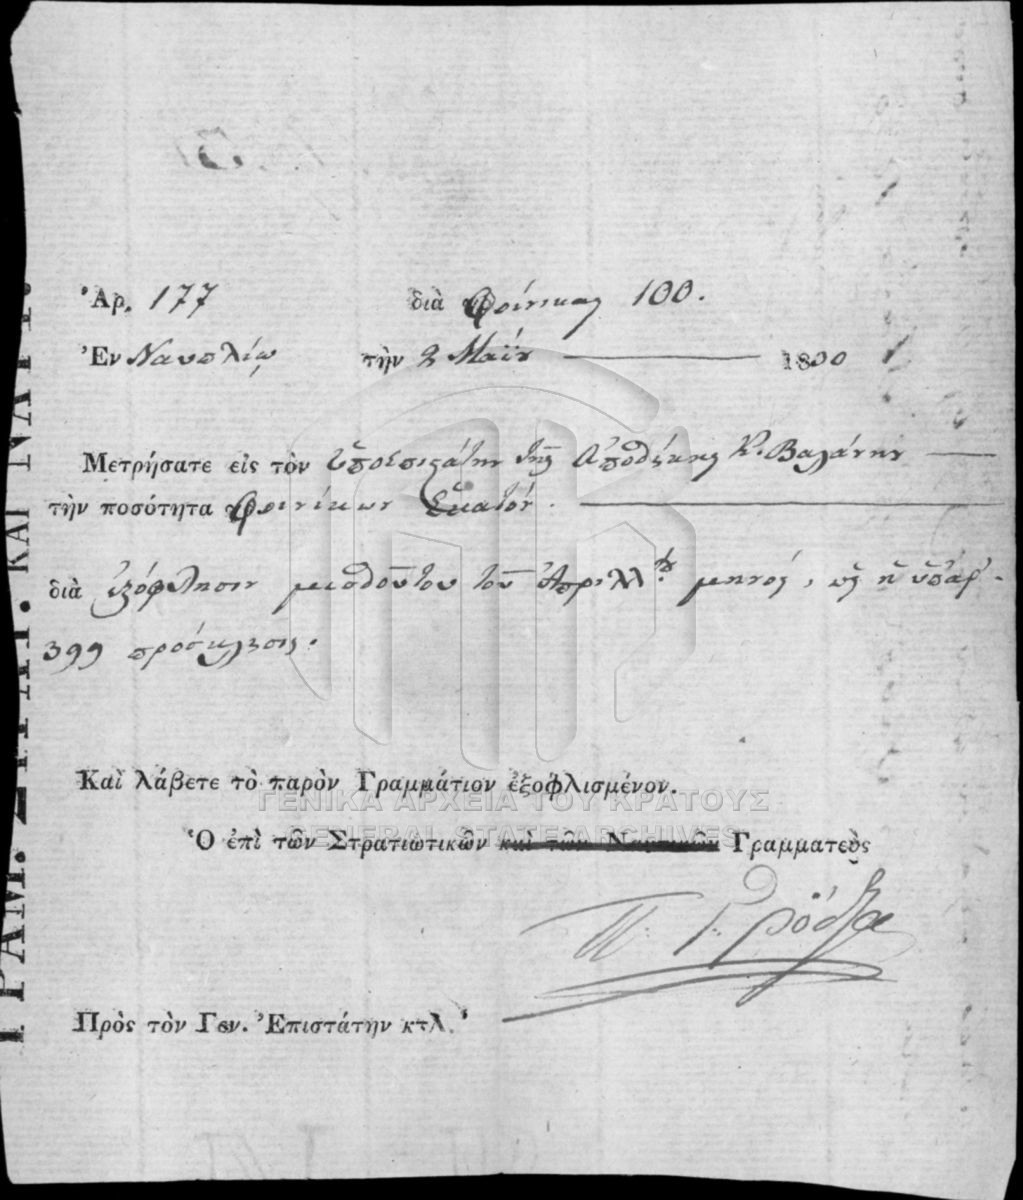 Ἀρ. 177 διὰ φοίνικας 100.
Ἐν Ναυπλίῳ τὴν 2 Μαΐου 1830
Μετρήσατε εἰς τὸν ὑποεπιστάτην τῆς Ἀποθήκης Κ. Βαλάνην
τὴν ποσότητα φοινίκων Ἑκατόν.
διὰ ἐξόφλησιν μισθοῦ του τοῦ Ἀπριλλίου μηνός, ὡς ἡ ὑπ' ἀρ.
399 πρόσκλησις.
Καὶ λάβετε τὸ παρὸν Γραμμάτιον ἐξοφλισμένον.
Ὁ ἐπὶ τῶν Στρατιωτικῶν καὶ τῶν Ναυτικῶν Γραμματεὺς
Πρὸς τὸν Γεν. Ἐπιστάτην κτλ.
ΓΡΑΜ. ΣΤΡΑΤ. ΚΑΙ ΝΑΥΤ.
ΓΕΝΙΚΑ ΑΡΧΕΙΑ ΤΟΥ ΚΡΑΤΟΥΣ
GENERAL STATE ARCHIVES